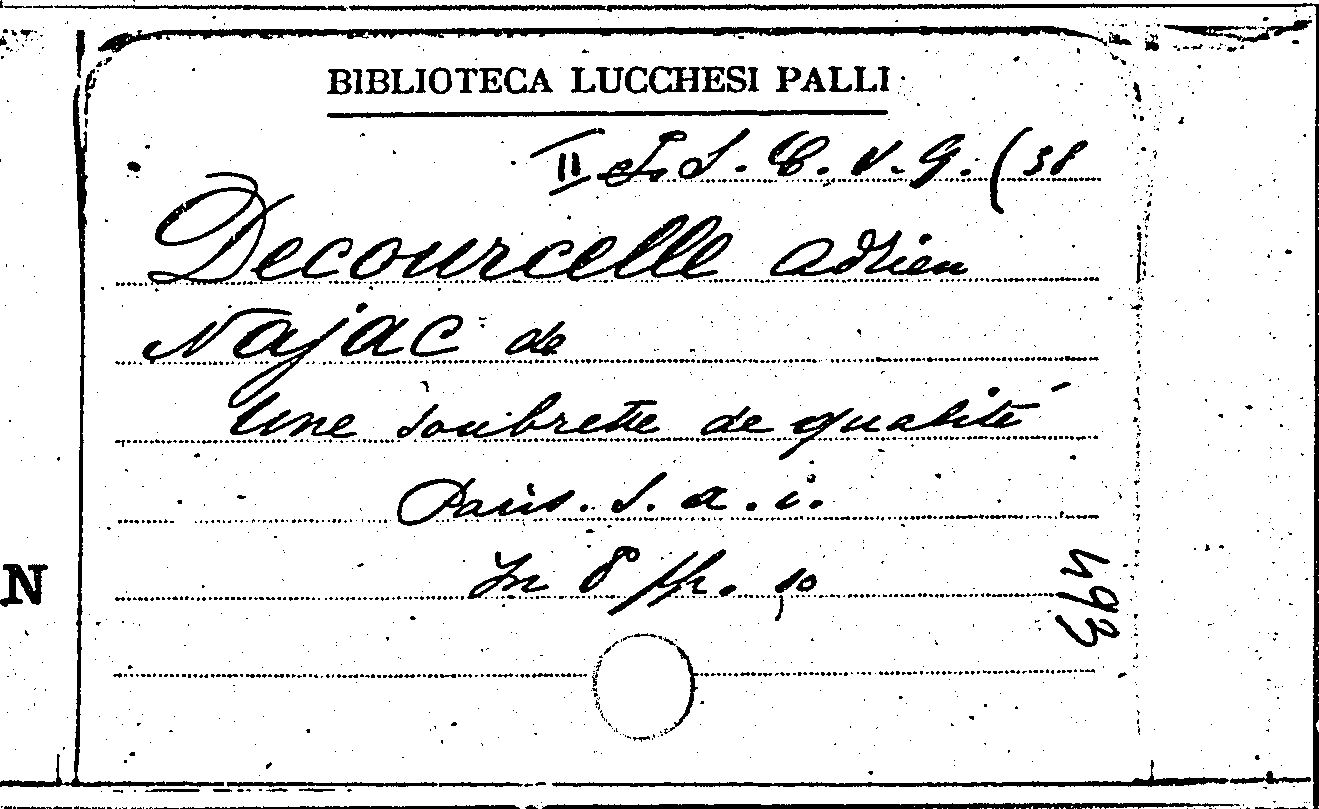 BIBLIOTECA LUCCHESI PALLI
II L. S. C. V. G. (38
Decourcelle Adrien
Najac de
Une soubrette de qualité
Paris. S. a. i.
In 8° pp. 10
493
N